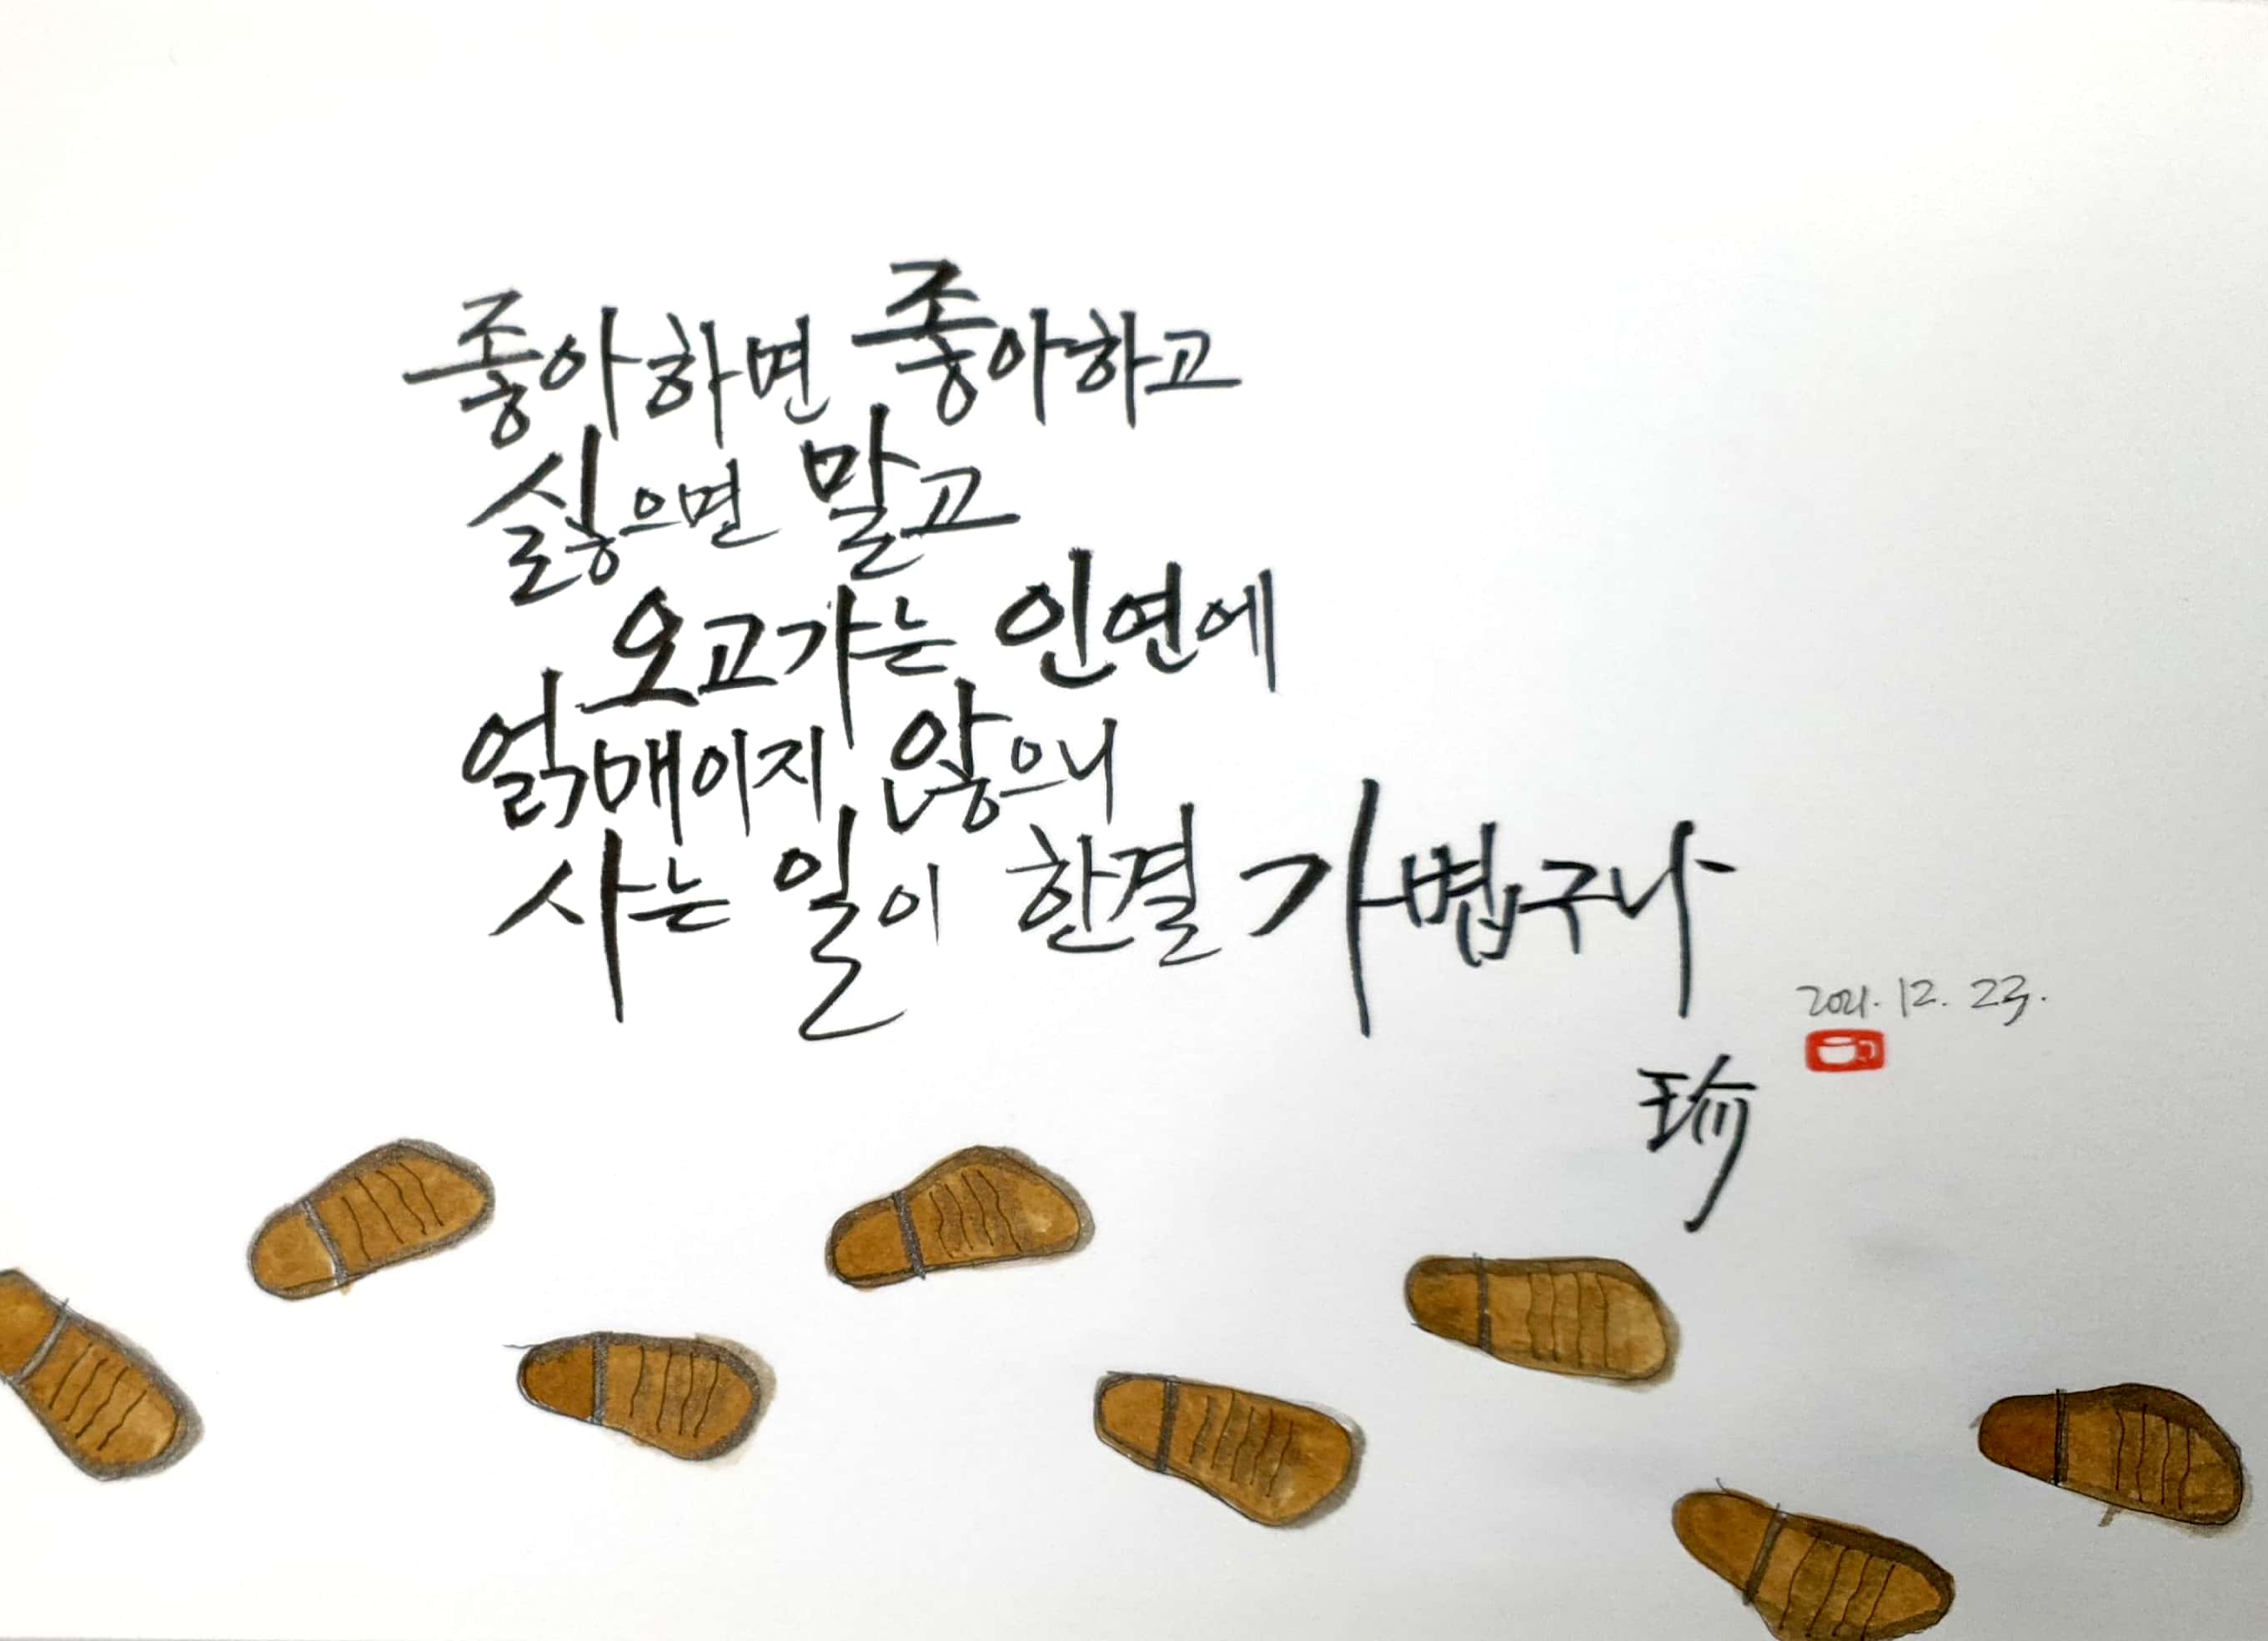 좋아하면 좋아하고
싫으면 말고
오고가는 인연에
얽매이지 않으니
사는 일이 한결 가볍구나
2021. 12. 23.